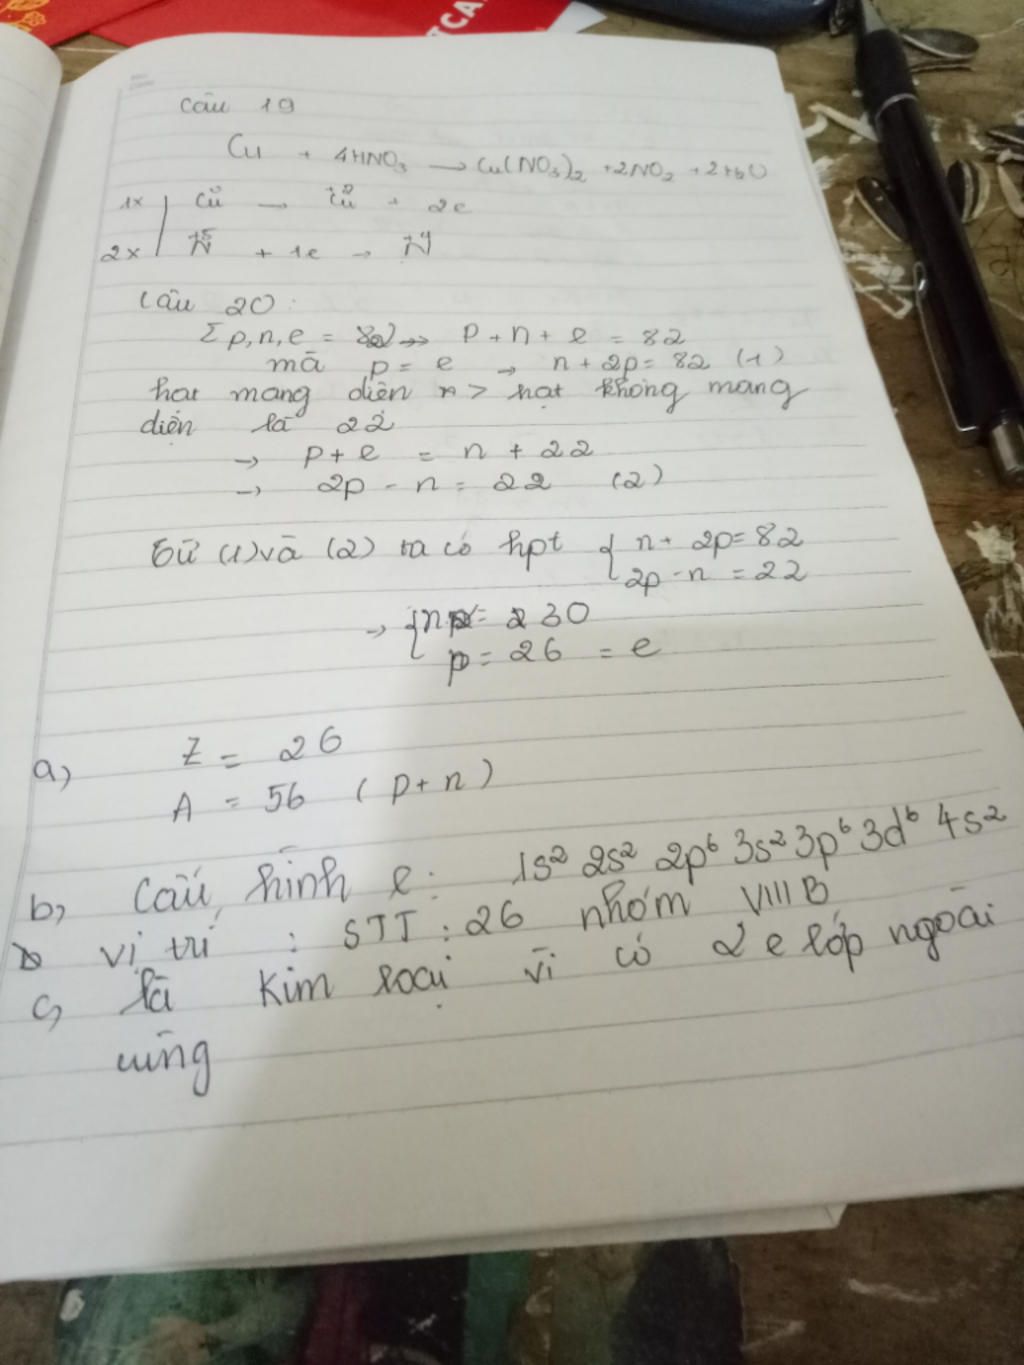 TCA
Câu 19
Cu + 4HNO₃ → Cu(NO₃)₂ + 2NO₂ + 2H₂O
1x | Cu⁰ → Cu⁺² + 2e
2x | N⁺⁵ + 1e → N⁺⁴
Câu 20:
Σp,n,e = 82 → p + n + e = 82
mà p = e → n + 2p = 82 (1)
hạt mang điện > hạt không mang
điện là 22
→ p + e = n + 22
→ 2p - n = 22 (2)
Từ (1) và (2) ta có hpt { n + 2p = 82
2p - n = 22
→ { n = 30
p = 26 = e
a, Z = 26
A = 56 (p + n)
b, Cấu hình e: 1s² 2s² 2p⁶ 3s² 3p⁶ 3d⁶ 4s²
vị trí : STT : 26 nhóm VIIIB
c, là kim loại vì có 2e lớp ngoài
cùng